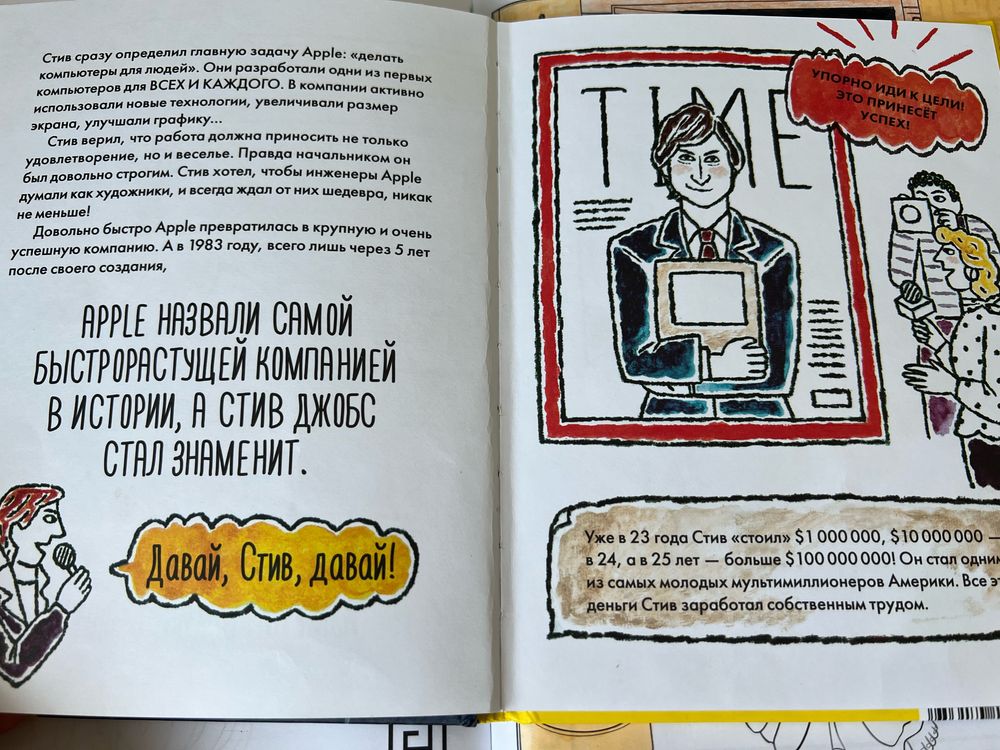 Стив сразу определил главную задачу Apple: «делать
компьютеры для людей». Они разработали одни из первых
компьютеров для ВСЕХ И КАЖДОГО. В компании активно
использовали новые технологии, увеличивали размер
экрана, улучшали графику...
Стив верил, что работа должна приносить не только
удовлетворение, но и веселье. Правда начальником он
был довольно строгим. Стив хотел, чтобы инженеры Apple
думали как художники, и всегда ждал от них шедевра, никак
не меньше!
Довольно быстро Apple превратилась в крупную и очень
успешную компанию. А в 1983 году, всего лишь через 5 лет
после своего создания,
APPLE НАЗВАЛИ САМОЙ
БЫСТРОРАСТУЩЕЙ КОМПАНИЕЙ
В ИСТОРИИ, А СТИВ ДЖОБС
СТАЛ ЗНАМЕНИТ.
Давай, Стив, давай!
TIME
УПОРНО ИДИ К ЦЕЛИ!
ЭТО ПРИНЕСЁТ
УСПЕХ!
Уже в 23 года Стив «стоил» $1 000 000, $10 000 000 —
в 24, а в 25 лет — больше $100 000 000! Он стал одним
из самых молодых мультимиллионеров Америки. Все
деньги Стив заработал собственным трудом.